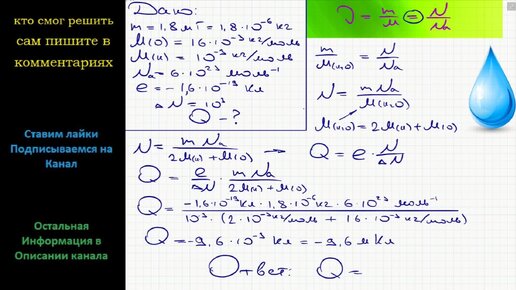 кто смог решить
сам пишите в
комментариях
Ставим лайки
Подписываемся на
Канал
Остальная
Информация в
Описании канала
Дано:
m = 1,8 мг = 1,8·10⁻⁶ кг
M(O) = 16·10⁻³ кг/моль
M(H) = 10⁻³ кг/моль
Nа = 6·10²³ моль⁻¹
e = −1,6·10⁻¹⁹ Кл
ΔN = 10³
Q − ?
ν = m/M = N/Nа
m/M(H₂O) = N/Nа
N = mNа/M(H₂O)
M(H₂O) = 2M(H) + M(O)
N = mNа/(2M(H) + M(O)) → Q = e · N/ΔN
Q = e/ΔN · mNа/(2M(H) + M(O))
Q = −1,6·10⁻¹⁹ Кл · 1,8·10⁻⁶ кг · 6·10²³ моль⁻¹/(10³ · (2·10⁻³ кг/моль + 16·10⁻³ кг/моль))
Q = −9,6·10⁻³ Кл = −9,6 мКл
Ответ: Q =